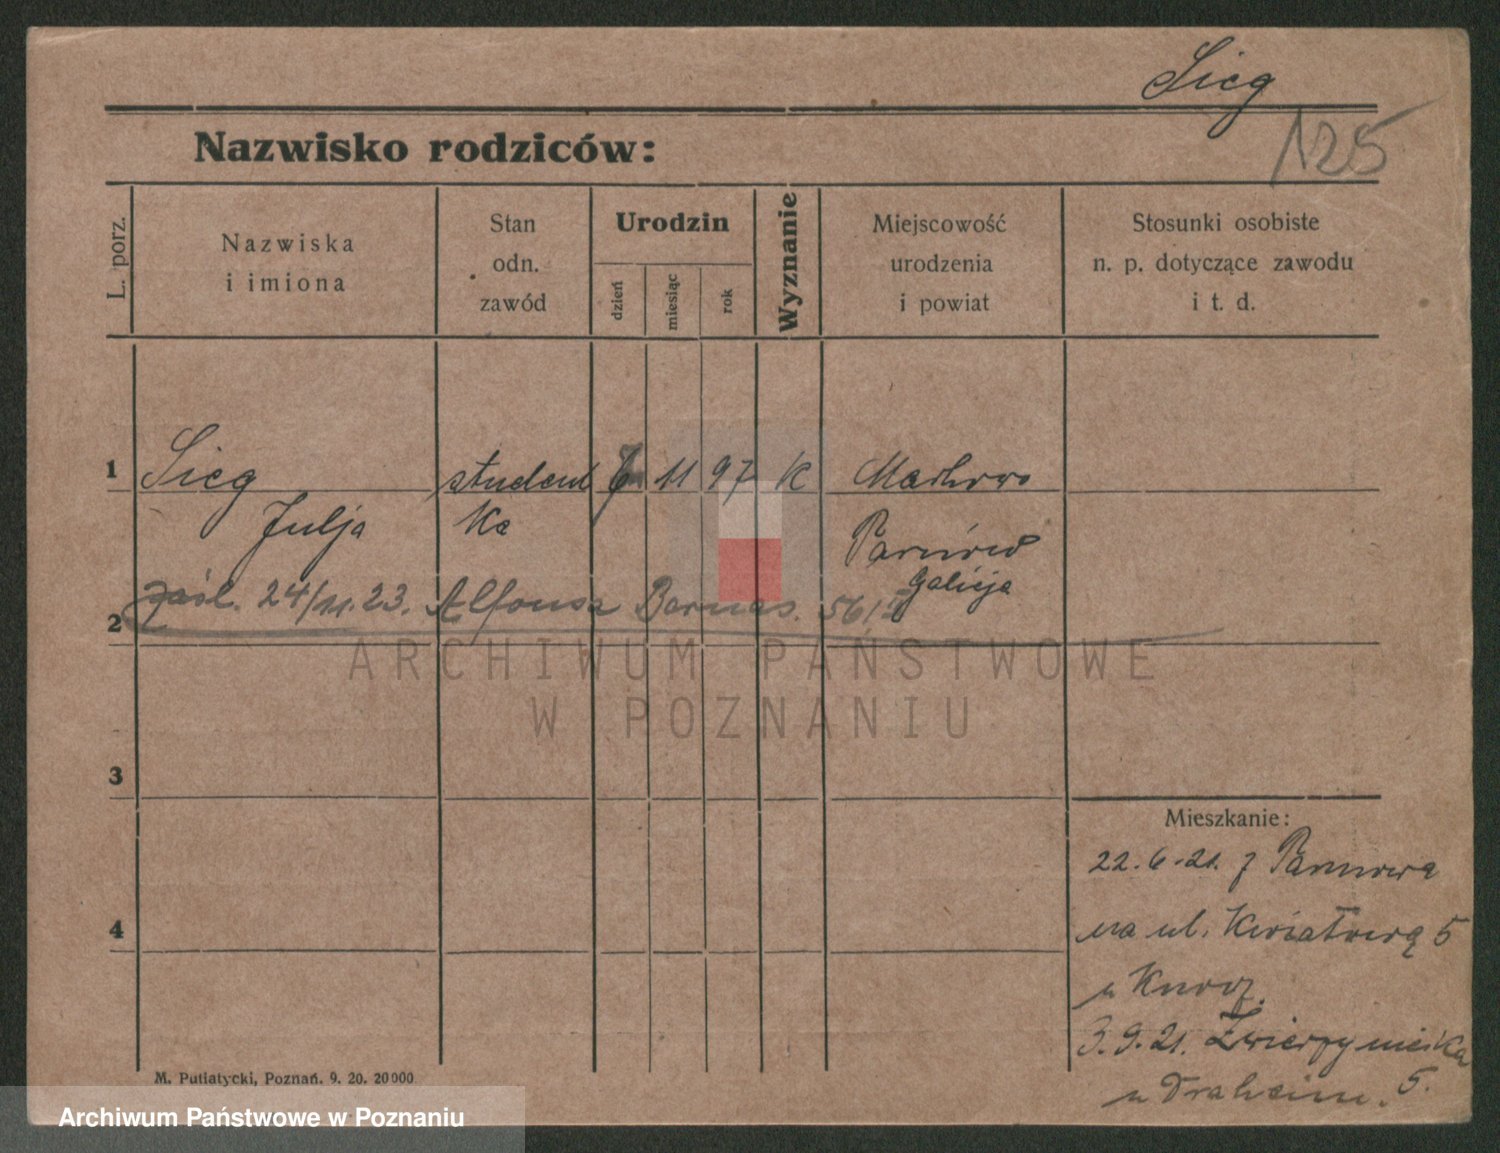 Sieg
125
Nazwisko rodziców:
L. porz.
Nazwiska
i imiona
Stan
odn.
zawód
Urodzin
dzień
miesiąc
rok
Wyznanie
Miejscowość
urodzenia
i powiat
Stosunki osobiste
n. p. dotyczące zawodu
i t. d.
1
Sieg student 11 97 K
Julja ka
Galicja
2
zaśl. 24/11.23. Alfonsa Barnas. 56/I
ARCHIWUM PAŃSTWOWE
W POZNANIU
3
Mieszkanie:
22.6.21. z
4
na ul. Kwiatową 5
u
3.9.21. Zwierzyniecka
u Draheim. 5.
M. Putiatycki, Poznań. 9. 20. 20000
Archiwum Państwowe w Poznaniu